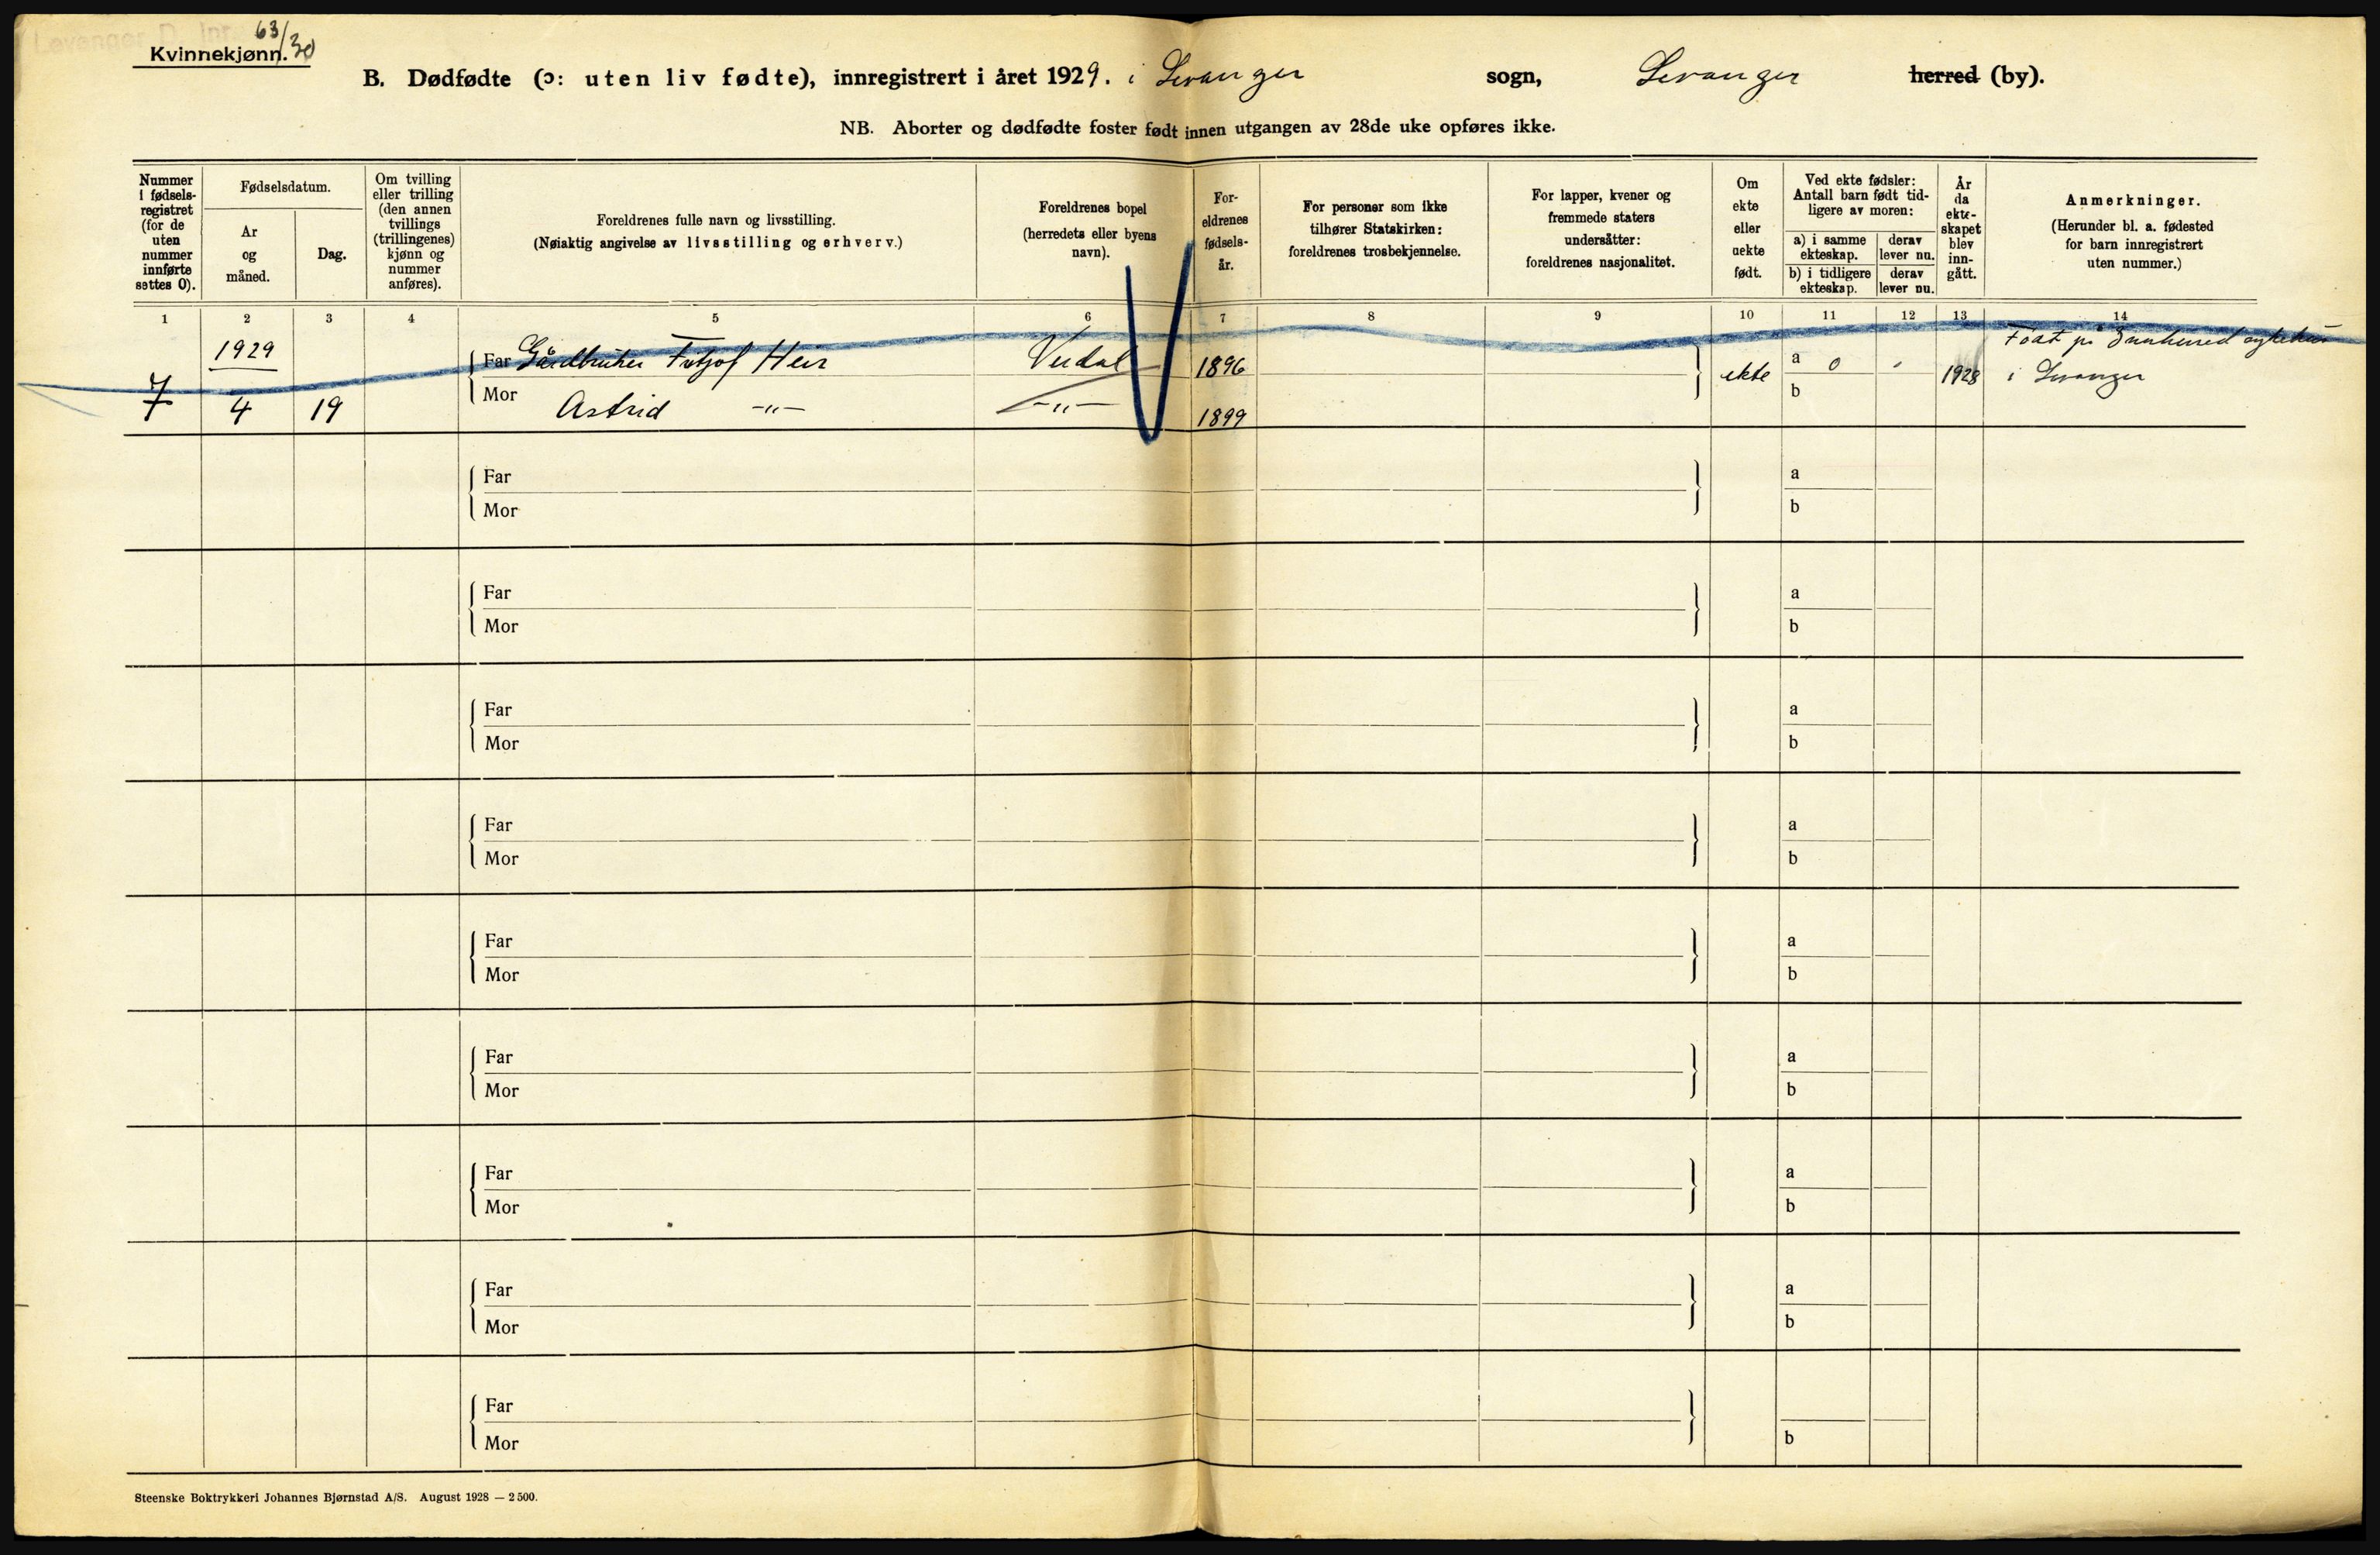 Levanger D. Inr. 63/30
Kvinnekjønn.
B. Dødfødte (ɔ: uten liv fødte), innregistrert i året 1929. i Levanger sogn, Levanger herred (by).
NB. Aborter og dødfødte foster født innen utgangen av 28de uke opføres ikke.
Nummer i fødselsregistret (for de uten nummer innførte settes 0).
Fødselsdatum.
År og måned.
Dag.
Om tvilling eller trilling (den annen tvillings (trillingenes) kjønn og nummer anføres).
Foreldrenes fulle navn og livsstilling.
(Nøiaktig angivelse av livsstilling og erhverv.)
Foreldrenes bopel (herredets eller byens navn).
Foreldrenes fødselsår.
For personer som ikke tilhører Statskirken: foreldrenes trosbekjennelse.
For lapper, kvener og fremmede staters undersåtter: foreldrenes nasjonalitet.
Om ekte eller uekte født.
Ved ekte fødsler: Antall barn født tidligere av moren:
a) i samme ekteskap.
derav lever nu.
b) i tidligere ekteskap.
derav lever nu.
År da ekteskapet blev inngått.
Anmerkninger.
(Herunder bl. a. fødested for barn innregistrert uten nummer.)
1 2 3 4 5 6 7 8 9 10 11 12 13 14
1929
Far Gårdbruker Fritjof Heir Verdal 1896 ekte a 0 - 1928 Født på Innherred sykehus
i Levanger
7 4 19 Mor Astrid -"- -"- 1899 b
Far a
Mor b
Far a
Mor b
Far a
Mor b
Far a
Mor b
Far a
Mor b
Far a
Mor b
Far a
Mor b
Far a
Mor b
Far
Mor b
Steenske Boktrykkeri Johannes Bjørnstad A/S. August 1928 — 2 500.